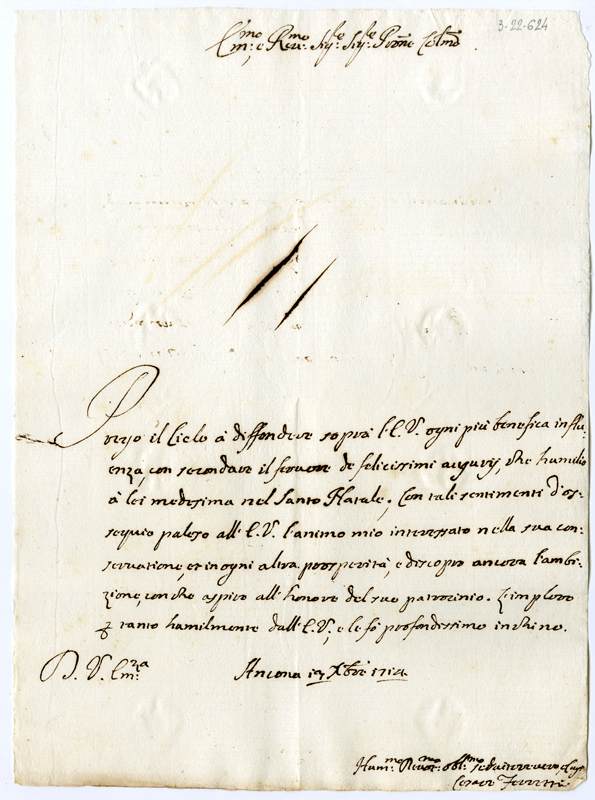 3-22-624
Em:mo e Reu:mo Sig:re Sig:re Prone Colmo
Prego il Cielo à diffondere soprà l'E.V. ogni più benefica influ-
enza, con secondare il feruore de felicissimi augurij, che humilio
à lei medesima nel Santo Natale; Con tali sentimenti d'os-
sequio paleso all'E.V. l'animo mio interessato nella sua con-
seruatione, et in ogni altra prosperità, e discopro ancora l'ambi-
zione, con che aspiro all'honore del suo patrocinio. L'imploro
p tanto humilmente dall'E.V., e le fò profondissimo inchino.
D. V. Em:za
Ancona 13 Xbre 1714
Hum:mo Deuot:mo Obl:mo seruitore uero
Cesare Ferretti